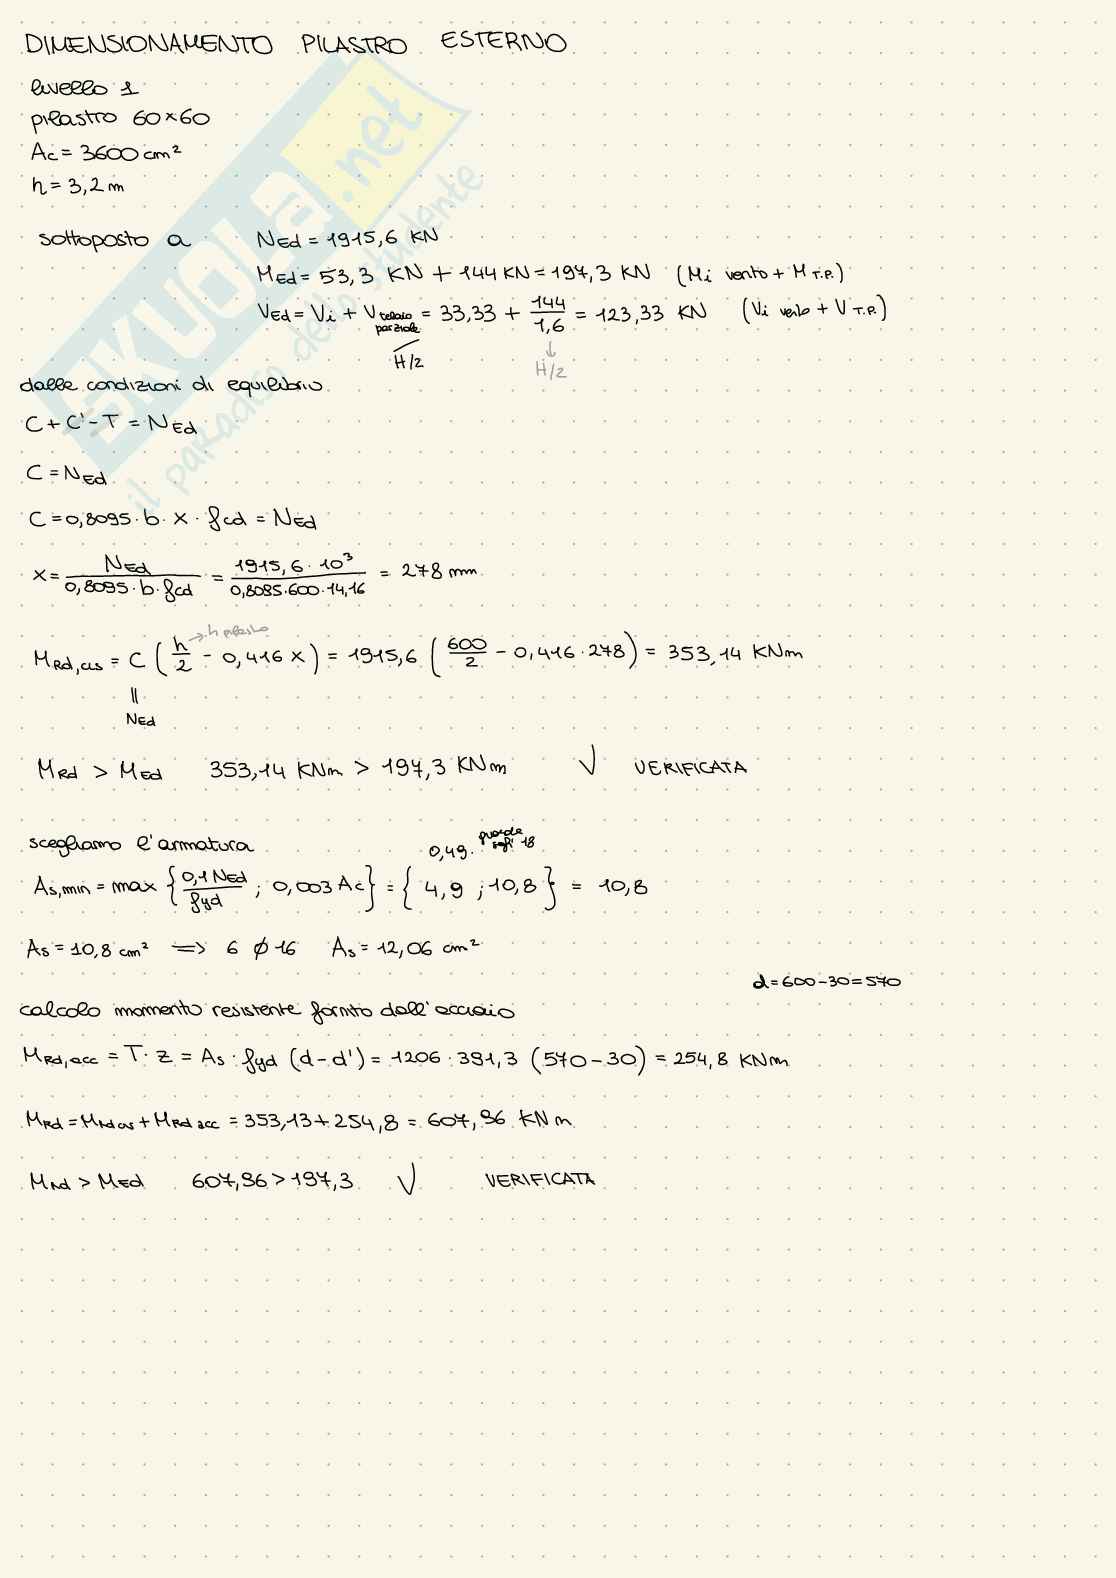 DIMENSIONAMENTO PILASTRO ESTERNO
livello 1
pilastro 60×60
Ac = 3600 cm²
h = 3,2 m
sottoposto a NEd = 1915,6 KN
MEd = 53,3 KN + 144 KN = 197,3 KN (Mi vento + M T.P.)
VEd = Vi + V telaio parziale = 33,33 + 144/1,6 = 123,33 KN (Vi vento + V T.P.)
H/2 H/2
dalle condizioni di equilibrio
C + C' - T = NEd
C = NEd
C = 0,8095 · b · x · fcd = NEd
x = NEd / 0,8095 · b · fcd = 1915,6 · 10³ / 0,8095·600·14,16 = 278 mm
→ h pilastro
MRd,cls = C (h/2 - 0,416 x) = 1915,6 (600/2 - 0,416 · 278) = 353,14 KNm
||
NEd
MRd > MEd 353,14 KNm > 197,3 KNm √ VERIFICATA
scegliamo l'armatura 0,49.
As,min = max {0,1 NEd / fyd ; 0,003 Ac} = {4,9 ; 10,8} = 10,8
As = 10,8 cm² => 6 ϕ 16 As = 12,06 cm²
d = 600 - 30 = 570
calcolo momento resistente fornito dall'acciaio
MRd,acc = T · z = As · fyd (d - d') = 1206 · 391,3 (570 - 30) = 254,8 KNm
MRd = MRd cls + MRd acc = 353,13 + 254,8 = 607,96 KNm
MRd > MEd 607,96 > 197,3 √ VERIFICATA
SKUOLA.net
il paradiso dello studente